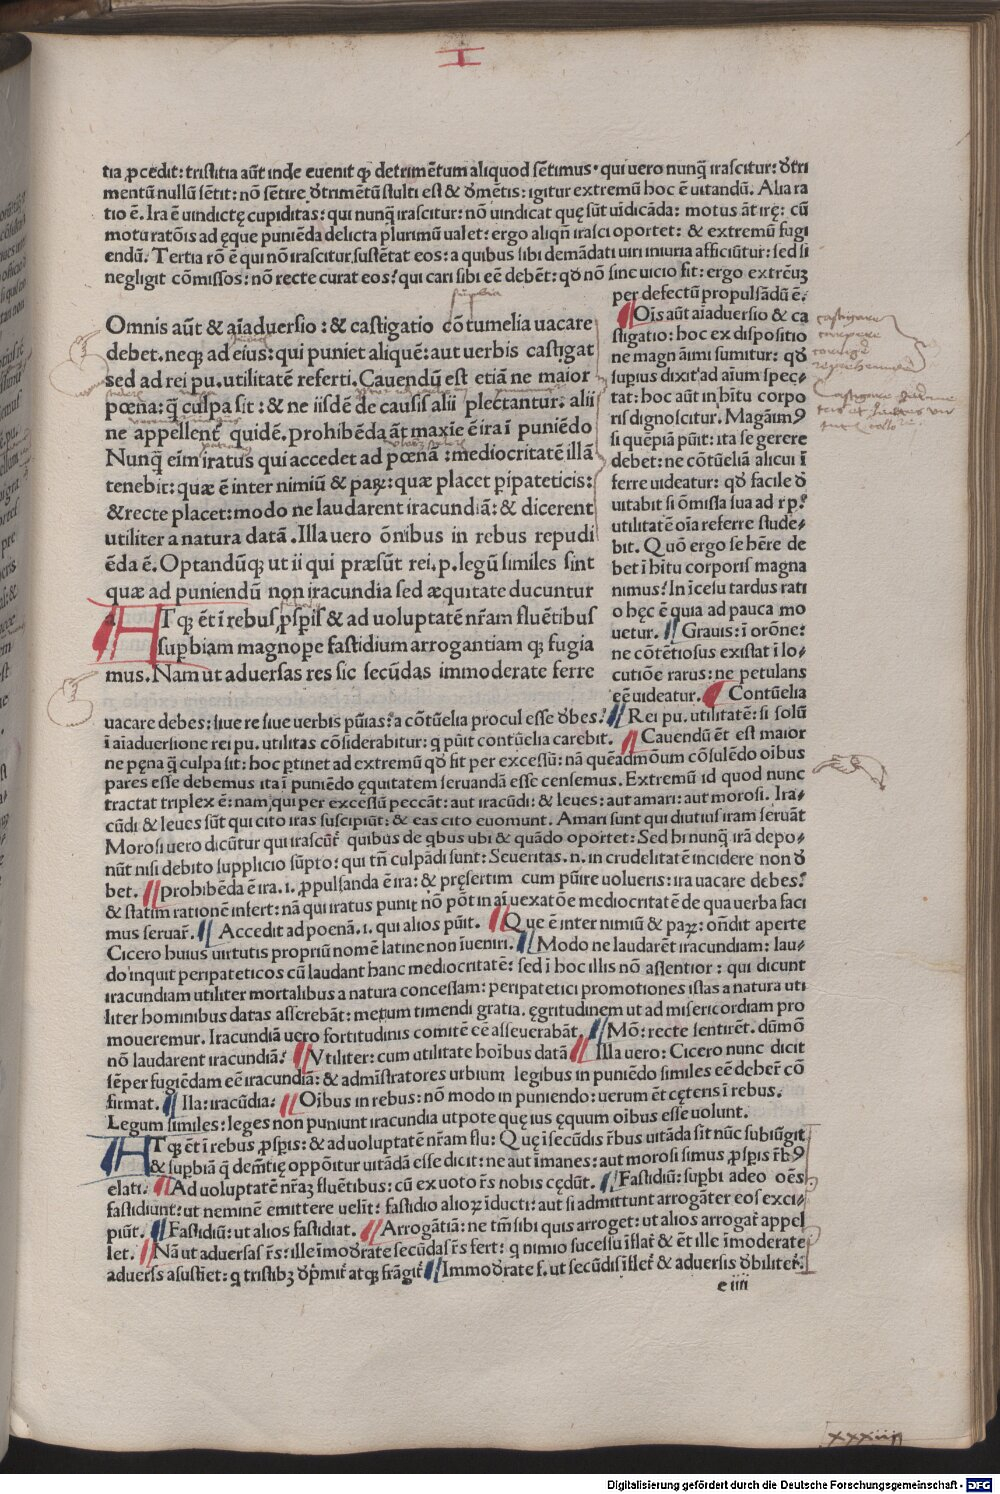 I
tia ꝓcedit: tristitia aūt inde euenit ꝙ detrimētum aliquod sētimus. qui uero nunq̄ irascitur: đtri
mentū nullū sētit: nō sētire đtrimētū stulti est & đmētis: igitur extremū hoc ē uitandū. Alia ra
tio ē. Ira ē uindictę cupiditas: qui nunq̄ irascitur: nō uindicat quę sūt uīdicāda: motus āt irę: cū
motu ratōis ad ęque puniēda delicta plurimū ualet: ergo aliqn̄ irasci oportet: & extremū fugi
endū. Tertia rō ē qui nō irascitur sustētat eos: a quibus sibi demādati uiri iniuria afficiūtur: sed si
negligit cōmissos: nō recte curat eos: qui cari sibi eē debēt: qđ nō sine uicio fit: ergo extrēuȝ
per defectū propulsādū ē.
Omnis aūt & aīaduersio: & castigatio cōtumelia uacare
debet. neqꝫ ad eius: qui puniet aliquē: aut uerbis castigat
sed ad rei pu. utilitatē referri. Cauendū est etiā ne maior
pœna: q̄ culpa sit: & ne iisdē de causis alii plectantur: alii
ne appellent̄ quidē. prohibēda āt maxīe ē ira ī puniēdo
Nunq̄ eīm iratus qui accedet ad pœnā: mediocritatē illā
tenebit: quæ ē inter nimiū & paꝝ: quæ placet pipateticis:
& recte placet: modo ne laudarent iracundiā: & dicerent
utiliter a natura datā. Illa uero ōnibus in rebus repudi
ēda ē. Optandūqꝫ ut ii qui præsūt rei. p. legū similes sint
quæ ad puniendū non iracundia sed æquitate ducuntur
ATqꝫ ēt ī rebus ꝓspis & ad uoluptatē nr̄am fluētibus
supbiam magnope fastidium arrogantiam qꝫ fugia
mus. Nam ut aduersas res sic secūdas immoderate ferre
Ois aūt aīaduersio & ca
stigatio: hoc ex dispositio
ne magnāimi sumitur: qđ
supius dixit ad aīum spec-
tat: hoc aūt in hītu corpo
ris dignoscitur. Magāimꝰ
si quēpiā pūit: ita se gerere
debet: ne cōtūeliā alicui ī
ferre uideatur: qđ facile đ
uitabit si ōmissa sua ad rp:
utilitatē oīa referre stude-
bit. Quō ergo se hēre de
bet ī hītu corporis magna
nimus: In īcesu tardus rati
o hęc ē quia ad pauca mo
uetur. Grauis: ī orōne:
ne cōtētiosus existat ī lo-
cutiōe rarus: ne petulans
eē uideatur. Contūelia
uacare debes: siue re siue uerbis pūias: a cōtūelia procul esse đbes: Rei pu. utilitatē: si solū
ī aīaduersione rei pu. utilitas cōsiderabitur: q pūit contūelia carebit. Cauendū ēt est maior
ne pęna q̄ culpa sit: hoc ptinet ad extremū qđ fit per excessū: nā quēadmōum cōsulēdo oībus
pares esse debemus ita ī puniēdo ęquitatem seruandā esse censemus. Extremū id quod nunc
tractat triplex ē: nam qui per excessū peccāt: aut iracūdi: & leues: aut amari: aut morosi. Ira-
cūdi & leues sūt qui cito iras suscipiūt: & eas cito euomunt. Amari sunt qui diutius iram seruāt
Morosi uero dicūtur qui irascūt̄ quibus de qbus ubi & quādo oportet: Sed hi nunq̄ irā depo-
nūt nisi debito supplicio sūpto: qui tn̄ culpādi sunt: Seueritas. n. in crudelitatē incidere non đ
bet. prohibēda ē ira. i. ꝓpulsanda ē ira: & pręsertim cum pūire uolueris: ira uacare debes:
& statim rationē infert: nā qui iratus punit nō pōt in aī uexatōe mediocritatē de qua uerba faci
mus seruar̄. Accedit ad poenā. i. qui alios pūit. Que ē inter nimiū & paꝝ: on̄dit aperte
Cicero huius uirtutis propriū nomē latine non īueniri. Modo ne laudarēt iracundiam: lau-
do inquit peripateticos cū laudant hanc mediocritatē: sed ī hoc illis nō assentior: qui dicunt
iracundiam utiliter mortalibus a natura concessam: peripatetici promotiones istas a natura uti
liter hominibus datas asserebāt: metum timendi gratia. ęgritudinem ut ad misericordiam pro
moueremur. Iracundiā uero fortitudinis comitē eē asseuerabāt. Mō: recte sentirēt. dūmō
nō laudarent iracundiā: Vtiliter: cum utilitate hoībus datā Illa uero: Cicero nunc dicit
sēper fugiēdam eē iracundiā: & admīstratores urbium legibus in puniēdo similes eē deber̄ cō
firmat. Ila: iracūdia: Oibus in rebus: nō modo in puniendo: uerum ēt cęteris ī rebus.
Legum similes: leges non puniunt iracundia utpote quę ius ęquum oībus esse uolunt.
ATqꝫ ēt ī rebus ꝓspis: & ad uoluptatē nr̄am flu: Quę ī secūdis r̄bus uitāda sīt nūc subiūgit
& supbiā q̄ demētię oppōitur uitādā esse dicit: ne aut īmanes: aut morosi simus ꝓspis r̄bꝰ
elati. Ad uoluptatē nr̄aȝ fluētibus: cū ex uoto r̄s nobis cędūt. Fastidiū: supbi adeo oēs
fastidiunt: ut neminē emittere uelīt: fastidio alioꝝ īducti: aut si admittunt arrogāter eos exci-
piūt. Fastidiū: ut alios fastidiat. Arrogātiā: ne tm̄ sibi quis arroget: ut alios arrogar̄ appel
let. Nā ut aduersas r̄s: ille īmođrate secūdas r̄s fert: q nimio sucessu īflat̄ & ēt ille īmoderate
aduersꝭ asustīet: q tristibȝ đpmit̄ atqꝫ frāgit̄ Immođrate f. ut secūdis īflet̄ & aduersis đbilitet̄:
e iiii
xxxiiij
Digitalisierung gefördert durch die Deutsche Forschungsgemeinschaft - DFG